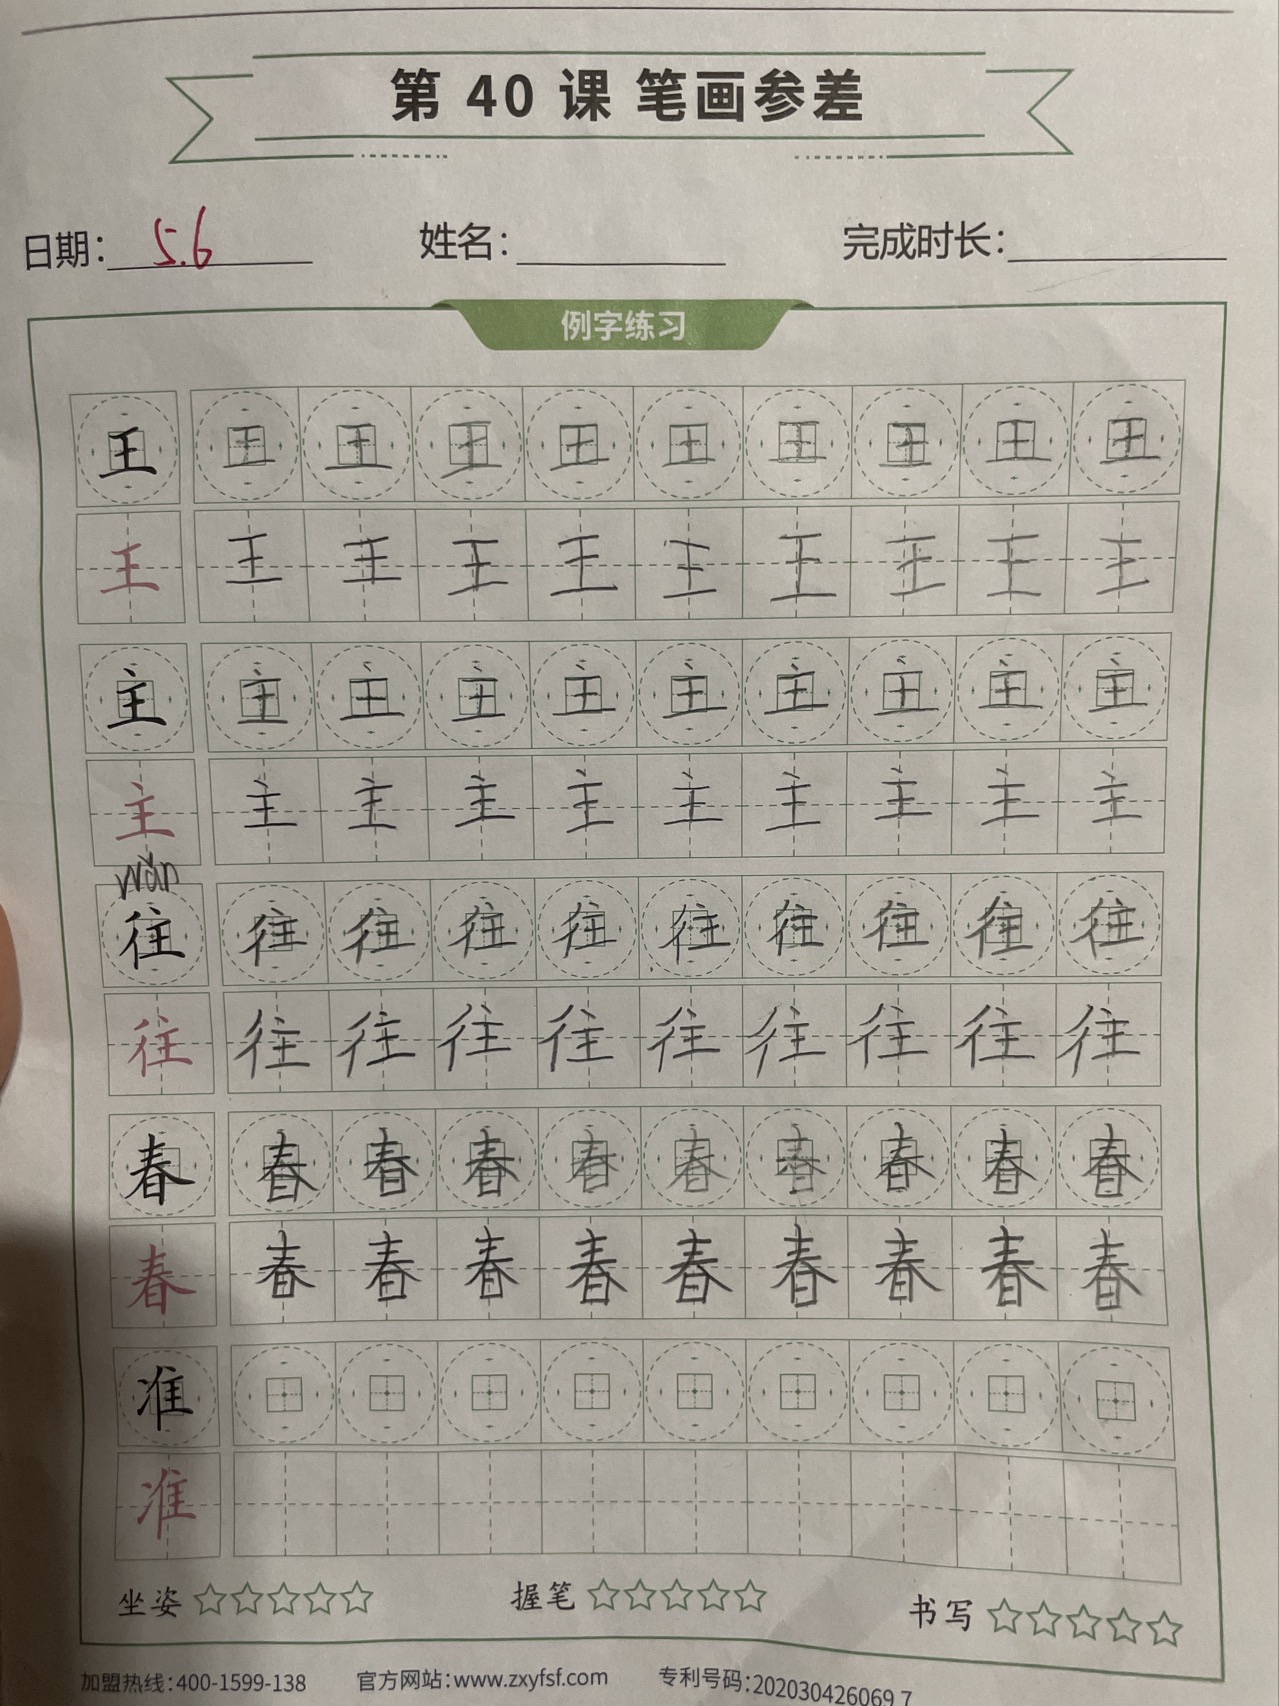 第 40 课 笔画参差
日期: 5.6 姓名: 完成时长:
例字练习
王 王 王 王 王 王 王 王 王 王
王 王 王 王 王 王 王 王 王 王
主 主 主 主 主 主 主 主 主 主
主 主 主 主 主 主 主 主 主 主
wǎn
往 往 往 往 往 往 往 往 往 往
往 往 往 往 往 往 往 往 往 往
春 春 春 春 春 春 春 春 春 春
春 春 春 春 春 春 春 春 春 春
准
准
坐姿 ☆☆☆☆☆ 握笔 ☆☆☆☆☆ 书写 ☆☆☆☆☆
加盟热线:400-1599-138 官方网站:www.zxyfsf.com 专利号码:202030426069.7